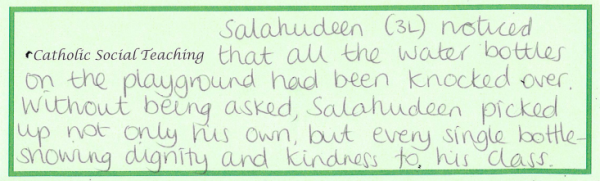 Salahudeen (3L) noticed
•Catholic Social Teaching that all the water bottles
on the playground had been knocked over.
Without being asked, Salahudeen picked
up not only his own, but every single bottle–
showing dignity and kindness to his class.